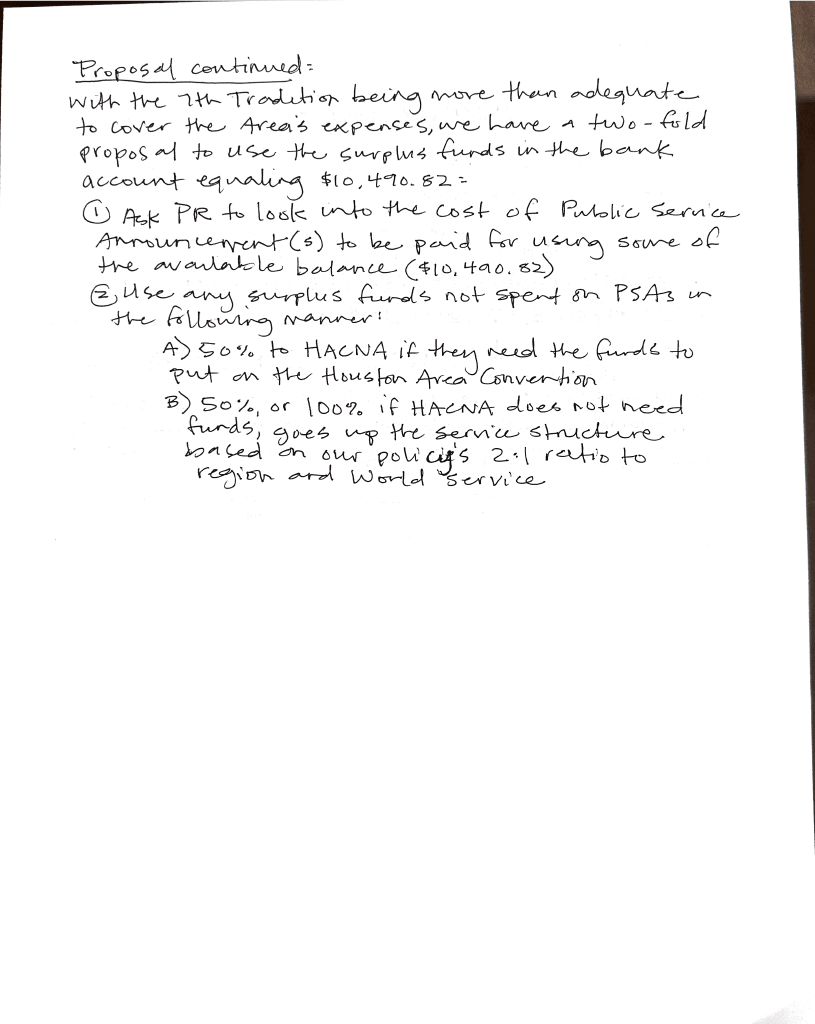 Proposal continued:
With the 7th Tradition being more than adequate
to cover the Area's expenses, we have a two-fold
proposal to use the surplus funds in the bank
account equaling $10,490.82:
① Ask PR to look into the cost of Public Service
Announcement(s) to be paid for using some of
the available balance ($10,490.82)
② Use any surplus funds not spent on PSAs in
the following manner:
A) 50% to HACNA if they need the funds to
put on the Houston Area Convention
B) 50%, or 100% if HACNA does not need
funds, goes up the service structure
based on our policy's 2:1 ratio to
region and World Service